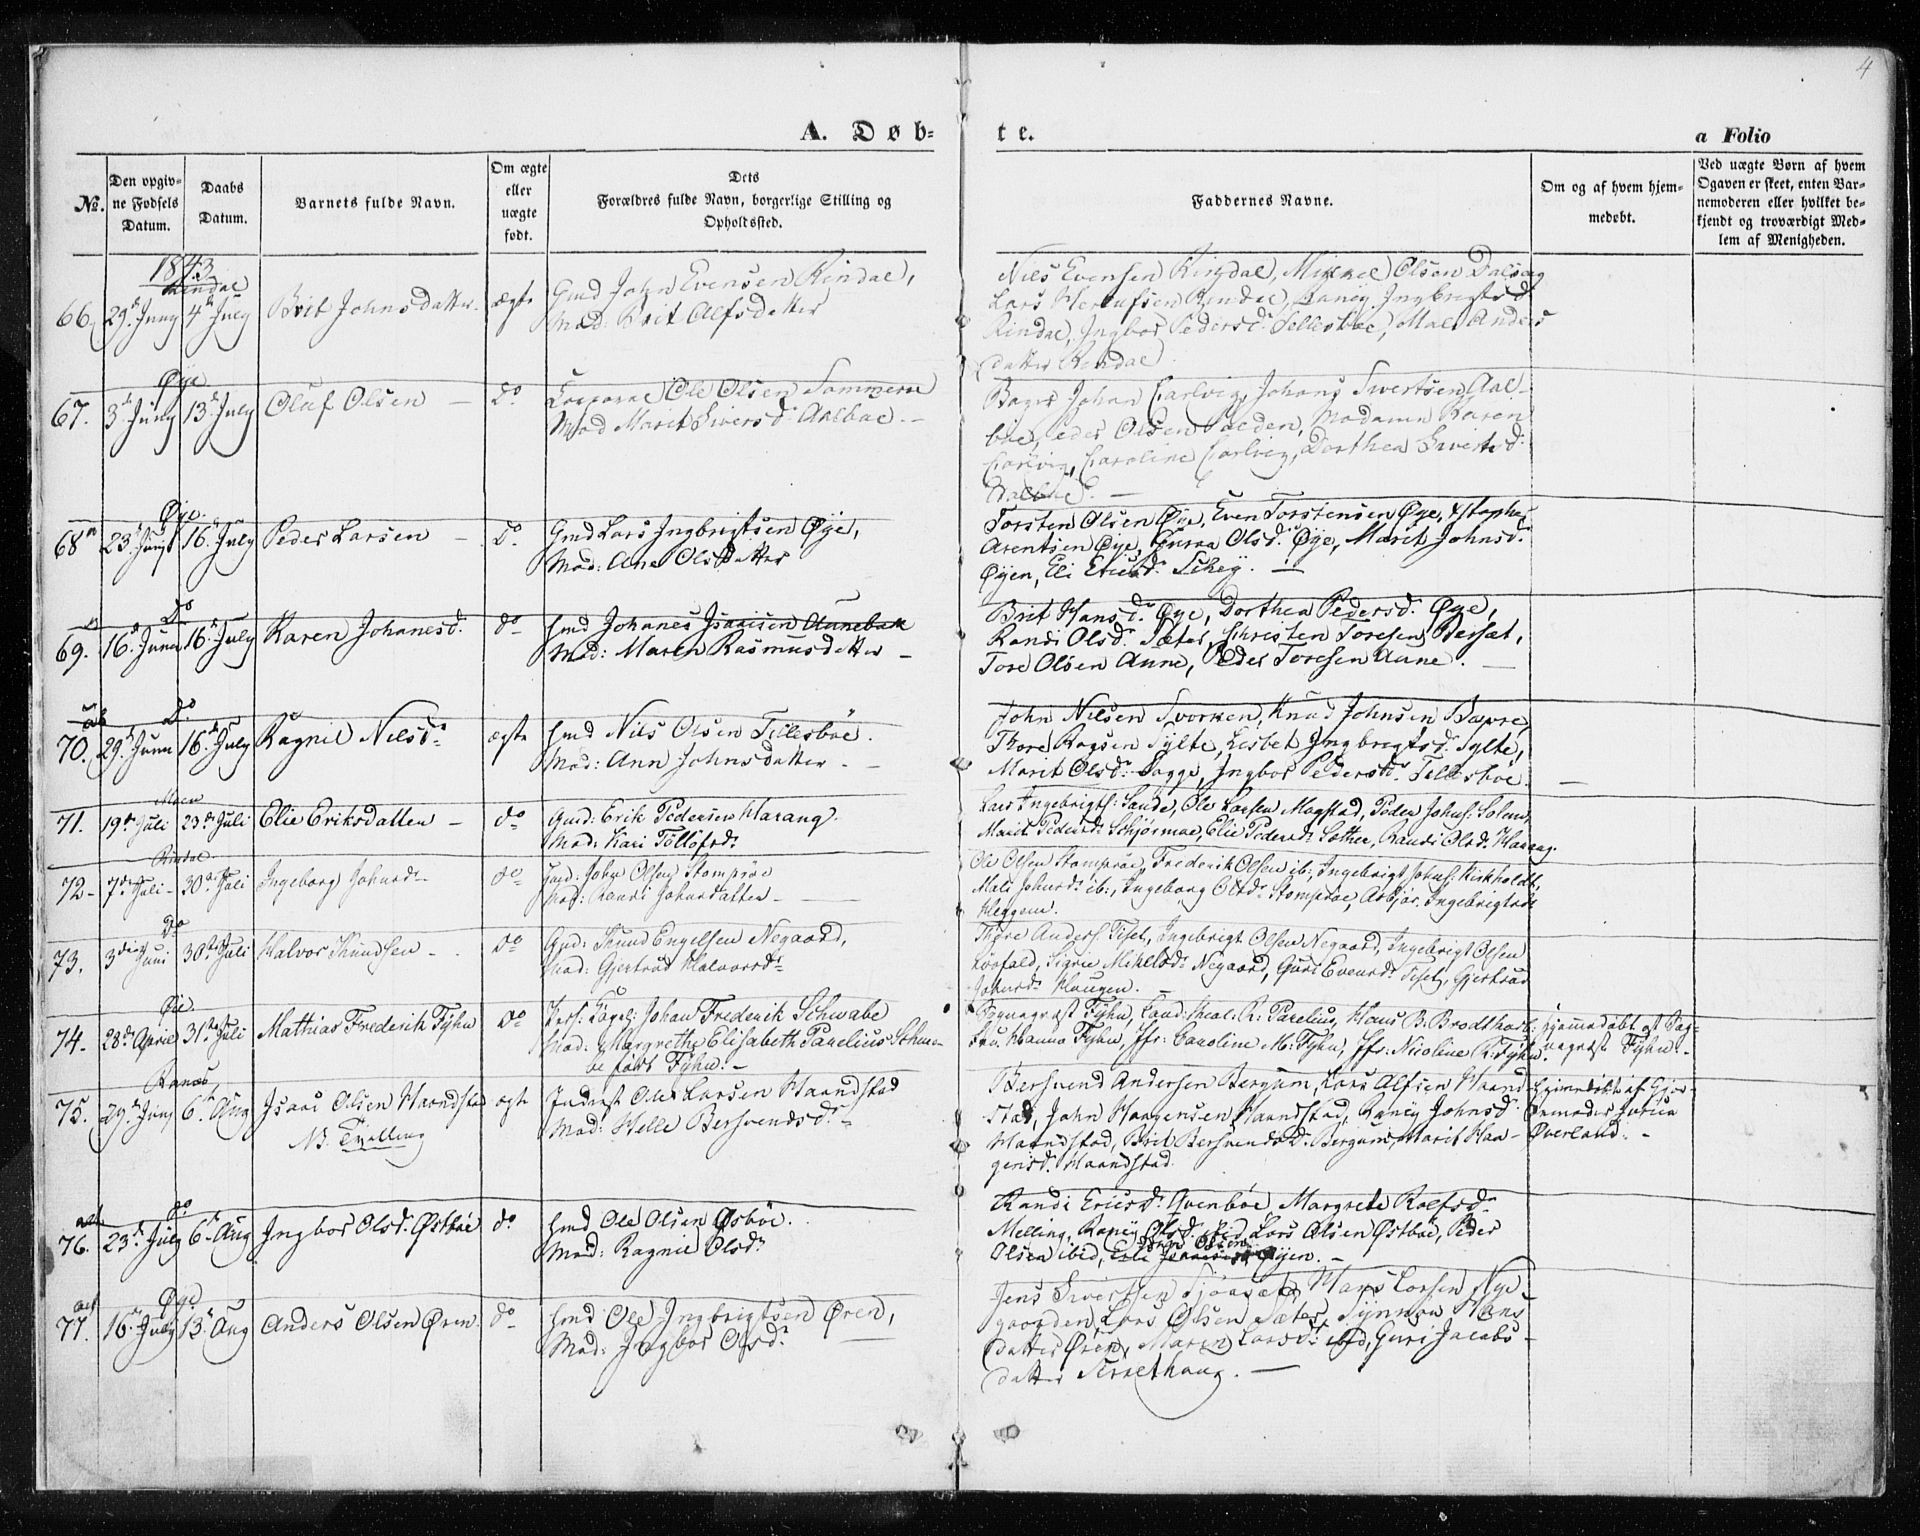 4
A. Døb-
te.
a Folio
No.
Den opgiv-
ne Fødsels
Datum.
Daabs
Datum.
Barnets fulde Navn.
Om ægte
eller
uægte
født.
Dets
Forældres fulde Navn, borgerlige Stilling og
Opholdssted.
Faddernes Navne.
Om og af hvem hjem-
medøbt.
Ved uægte Børn af hvem
Opgaven er skeet, enten Bar-
nemoderen eller hvilket be-
kjendt og troværdigt Med-
lem af Menigheden.
1843
Rindal
66. 29. Juny 4de July Brit Johnsdatter ægte Gmd John Evensen Rindal,
Mod: Brit Alfsdatter
Nils Evensen Rindal, Mikkel Olsen Dalseg
Lars Rindal, Ingbrigtsd.
Rindal, Ingbor Pedersd. Tellesbøe, Mali Anders
datter Rindal
Øye
67. 3de Juny 13de July Oluf Olsen – Do Corporal Ole Olsen
Mod Marit Siversd. Aalbøe. –
Johan Carlvig, Johans Sivertsen Aal-
bøe, Peder Olsen, Madame Karen
Carlvig, Caroline Carlvig, Dorthea Sivertsd.
Øye
68 23. Juny 16. July Peder Larsen – Do Gmd Lars Ingbrigtsen Øye,
Mod: Ane Olsdatter
Torsten Olsen Øye, Even Torstensen Øye,
Arentsen Øye, Guroa Olsd. Øye, Marit Johnsd.
Øyen, Eli Ericsd. –
Do
69. 16. Juny 16. July Karen Johanesd. do hmd Johanes Isacsen Aunebak
Mod: Maren Rasmusdatter –
Brit Hansd. Øye, Dorthea Pedersd. Øye,
Randi Olsd. Sæter, Christen Toresen Bersæt,
Tore Olsen Aune, Peder Toresen Aune. –
Do
70. 29. Juny 16. July Ragnil Nilsd. ægte hmd Nils Olsen Tillesbøe.
Mod: Ann Johnsdatter – –
John Nilsen Svorken, Knud Johnsen Bævre,
Thore Sylte, Lisbet Ingbrigtsd. Sylte,
Marit Olsd. Bagge, Ingbor Pedersd. Tillesbøe. –
Moen
71. 19de Juli 23de Juli Elie Eriksdatter – do Gmd: Erik Pedersen Harang.
Mod: Kari Tollofsd.
Lars Ingebrigts. Sande, Ole Larsen Mogstad, Peder Johns. Solem,
Marit Pedersd. Schjørmoe, Elie Pedersd. Sæther, Randi Olsd. Harang.
Rindal
72 – 7de Juli – 30te Juli Ingeborg Johnsd. – do Gmd: John Olsen Stomprøe
Mod: Randi Johnsdatter – –
Ole Olsen Stomprøe, Frederik Olsen ib:, Ingebrigt Johns. Kirkholdt,
Mali Johnsd. ib:, Ingeborg Olsd. Stomprøe, Asbjør. Ingebrigtsd.
Heggem.
Do
73. 3die Juni 30te Juli Halvor Knudsen – do Gmd: Knud Engelsen Negaard,
Mod: Gjertrud Halvorsd.
Thore Anders. Tiset, Ingebrigt Olsen Negaard, Ingebrigt Olsen
Løefald, Sigrie Mikkelsd. Negaard, Guri Evensd. Tiset, Gjertrud
Johnsd. Haugen. –
Øye
74. 28de April 31te Juli Mathias Frederik Fyhn do Johan Frederik Schwabe
Mod: Margrethe Elisabeth Parelius Schwa-
be født Fyhn. –
Sognepræst Fyhn, Cand: theol. R. Parelius, Hans B. Brodtkorb
Fru. Hanna Fyhn, Jfr: Caroline M. Fyhn, Jfr: Nicoline R. Fyhn.
hjemmedøbt af Sog-
nepræst Fyhn. –
Ranæs,
75. 29. Juny 6. Aug Isaac Olsen Haandstad ægte Inderst Ole Larsen Haandstad
NB. Tvilling
Mod: Helle Bersvendsd. –
Bersvend Andersen Bergum, Lars Alfsen Haand-
stad, John Haagensen Haandstad, Raney Johnsd.
Haandstad, Brit Bersvendsd. Bergum, Marit Haa-
gensd. Haandstad.
Hjemmedøbt af Gjor-
demoder
Øverland. –
do
76. 23. July 6. Aug Ingbor Olsd. Østbøe do hmd Ole Olsen Østbøe.
Mod: Ragnil Olsd.
Randi Ericsd. Qvenbøe, Margrete Roelfsd.
Melling, Raney Olsd. ibid, Lars Olsen Østbøe, Peder
Olsen ibid, Øyen. –
Øye
77. 16. July 13. Aug Anders Olsen Øren do hmd Ole Ingbrigtsen Øren,
Mod: Ingbor Olsd.
Jens Sivertsen, Hans Larsen Nye
gaarden, Lars Olsen Sæter, Synnou Hans
datter Øren, Maren Larsd. ibid, Guri Jacobs-
datter. –